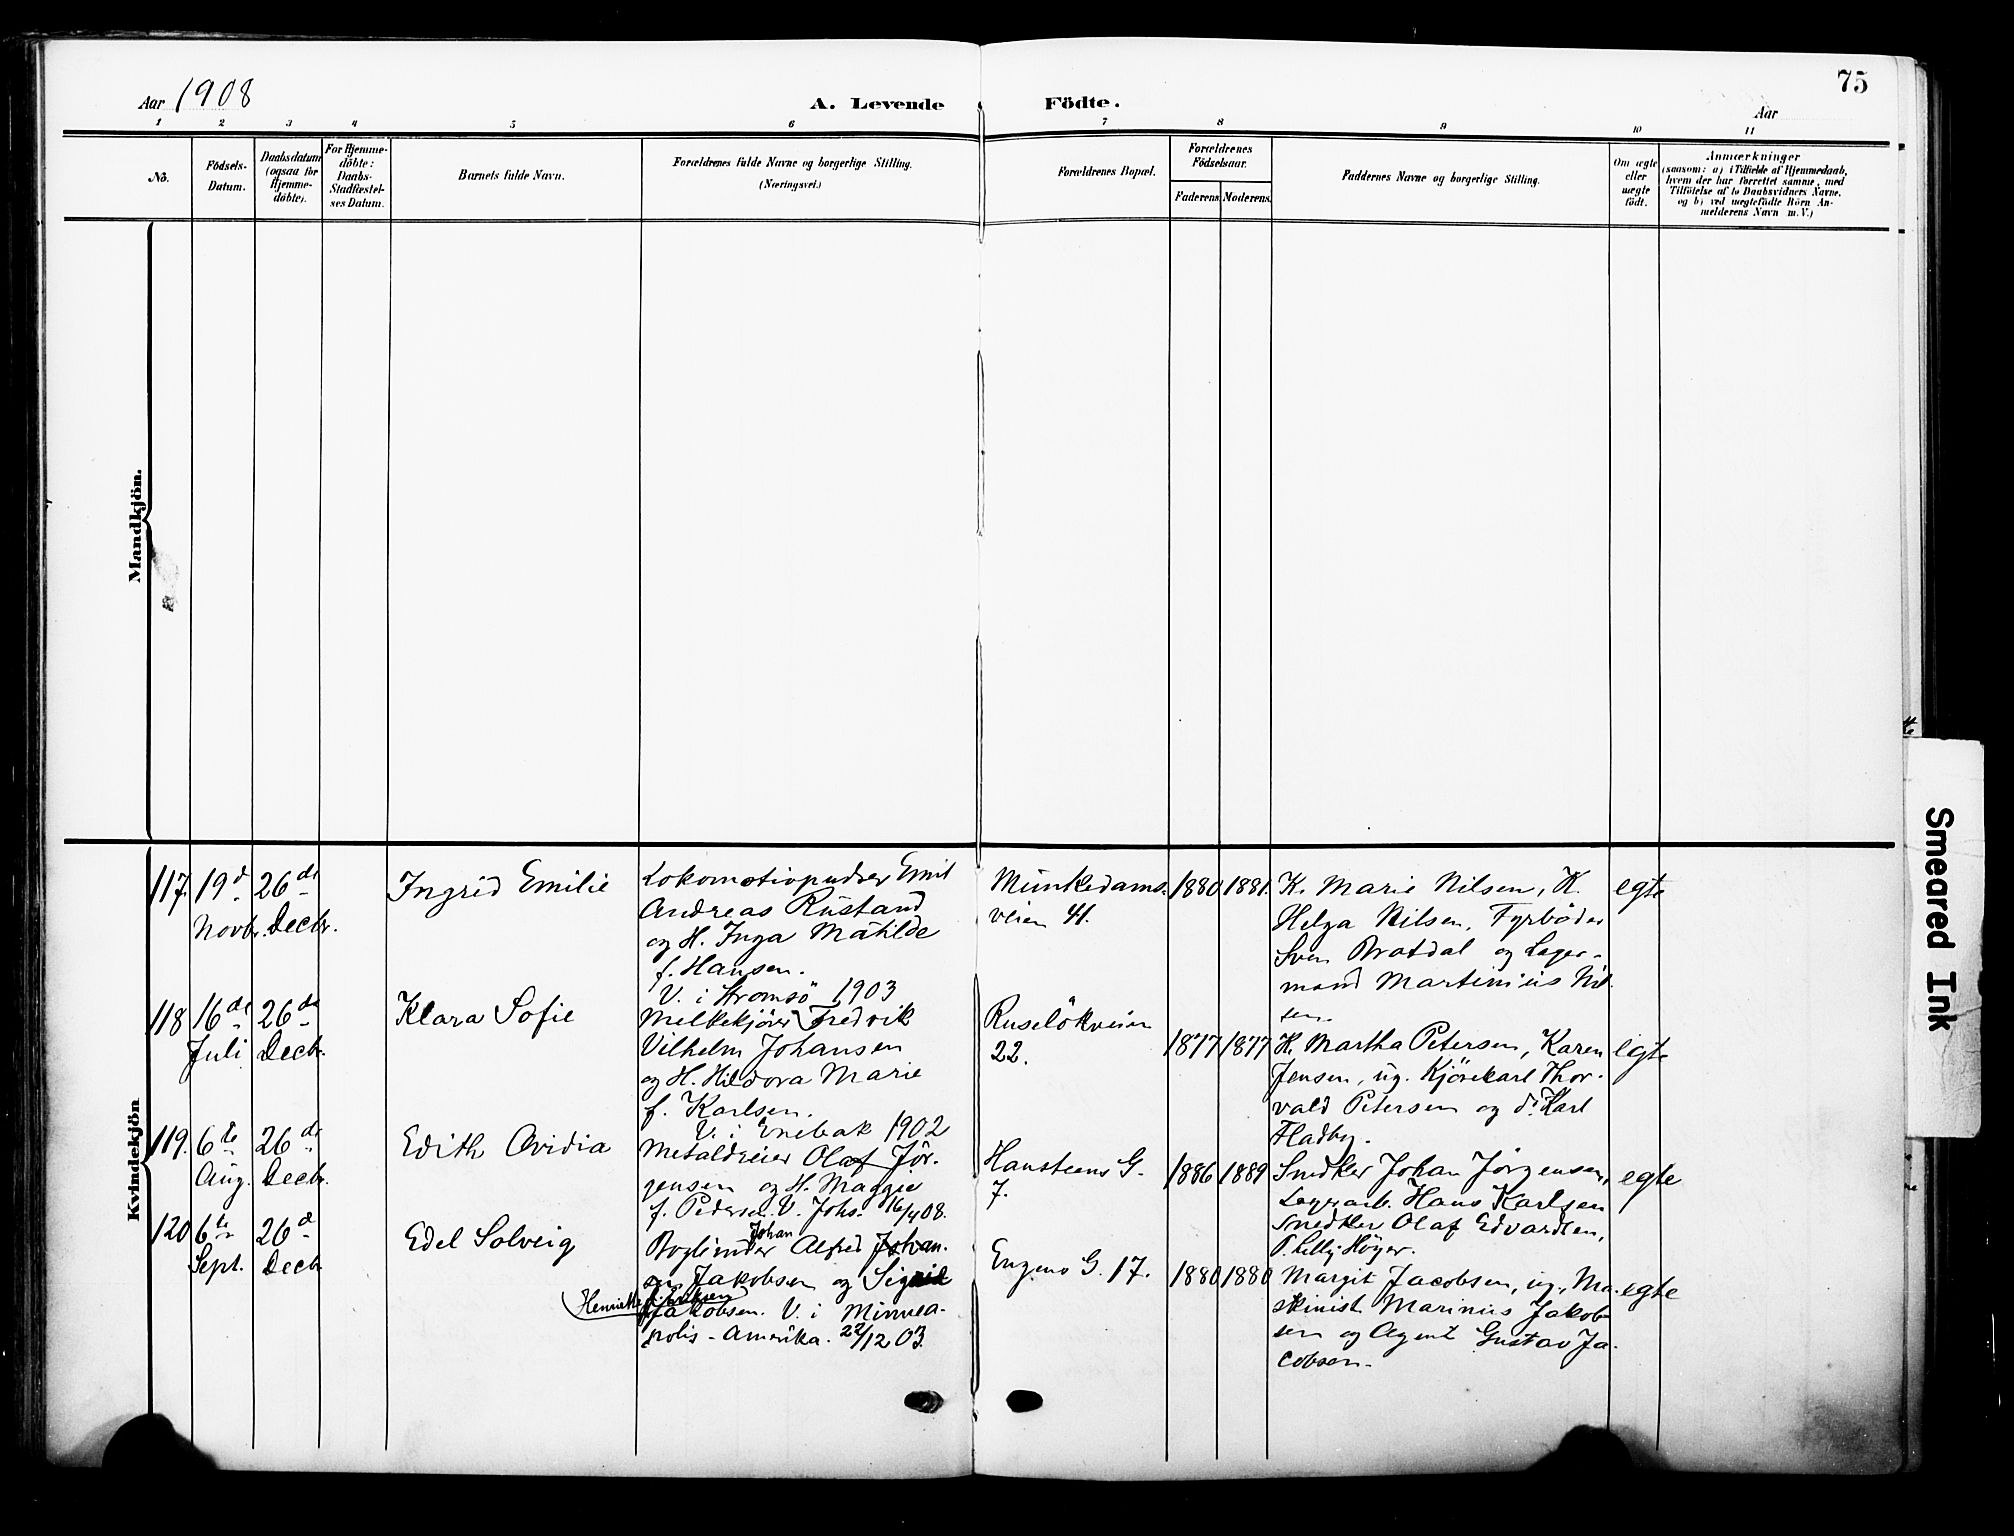 75
Aar 1908
A. Levende Födte.
Aar
1 2 3 4 5 6 7 8 9 10 11
No.
Födsels-
Datum.
Daabsdatum
(ogsaa for
Hjemme-
döbte).
For Hjemme-
döbte:
Daabs-
Stadfæstel-
ses Datum.
Barnets fulde Navn.
Forældrenes fulde Navne og borgerlige Stilling.
(Næringsvei.)
Forældrenes Bopæl.
Forældrenes
Födselsaar.
Faderens. Moderens.
Faddernes Navne og borgerlige Stilling.
Om ægte
eller
uægte
födt.
Anmærkninger
(saasom: a) i Tilfælde af Hjemmedaab,
hvem der har forrettet samme, med
Tilföielse af to Daabsvidners Navne.
og b) ved uægtefödte Börn An-
melderens Navn m. V.)
Mandkjön.
Kvindekjön
117. 19d
Novbr.
26de
Decbr.
Ingrid Emilie
Lokomotivpudser Emil
Andreas Rustand
og H. Inga Matilde
f. Hansen.
V. i Stromsö 1903
Munkedams-
veien 41.
1880 1881.
K. Marie Nilsen, K.
Helga Nilsen, Fyrböder
Sven Bratdal og Lager-
mand Martinius Nil-
sen.
egte
118 16de
Juli
26de
Decbr.
Klara Sofie
Melkekjörer Fredrik
Vilhelm Johansen
og H. Hildora Marie
f. Karlsen.
V. i Enebak 1902
Ruselökveien
22.
1877 1877
K. Martha Petersen, Karen
Jensen, ug. Kjörekarl Thor-
vald Petersen og do Karl
Fladby.
egte
119. 6te
Aug.
26de
Decbr.
Edith Ovidia
Metaldreier Olaf Jör-
gensen og H. Maggie
f. Pedersen. V. Johs. 16/4 08.
Hansteens G.
7.
1886 1889
Snedker Johan Jörgensen,
Lagerarb. Hans Karlsen
Snedker Olaf Edvardsen,
P. Lilly Höyer.
egte
120 6te
Sept.
26d
Decb
Edel Solveig
Johan
Bogbinder Alfred Johan-
sen Jakobsen og Sigrid
Henriette f. Eriksen
Jakobsen. V. i Minnea-
polis - Amerika. 22/12 03.
Eugens G. 17.
1880 1880
Margit Jacobsen, ug., Ma-
skinist Marinius Jakob-
sen og Agent Gustav Ja-
cobsen.
egte
Smeared Ink